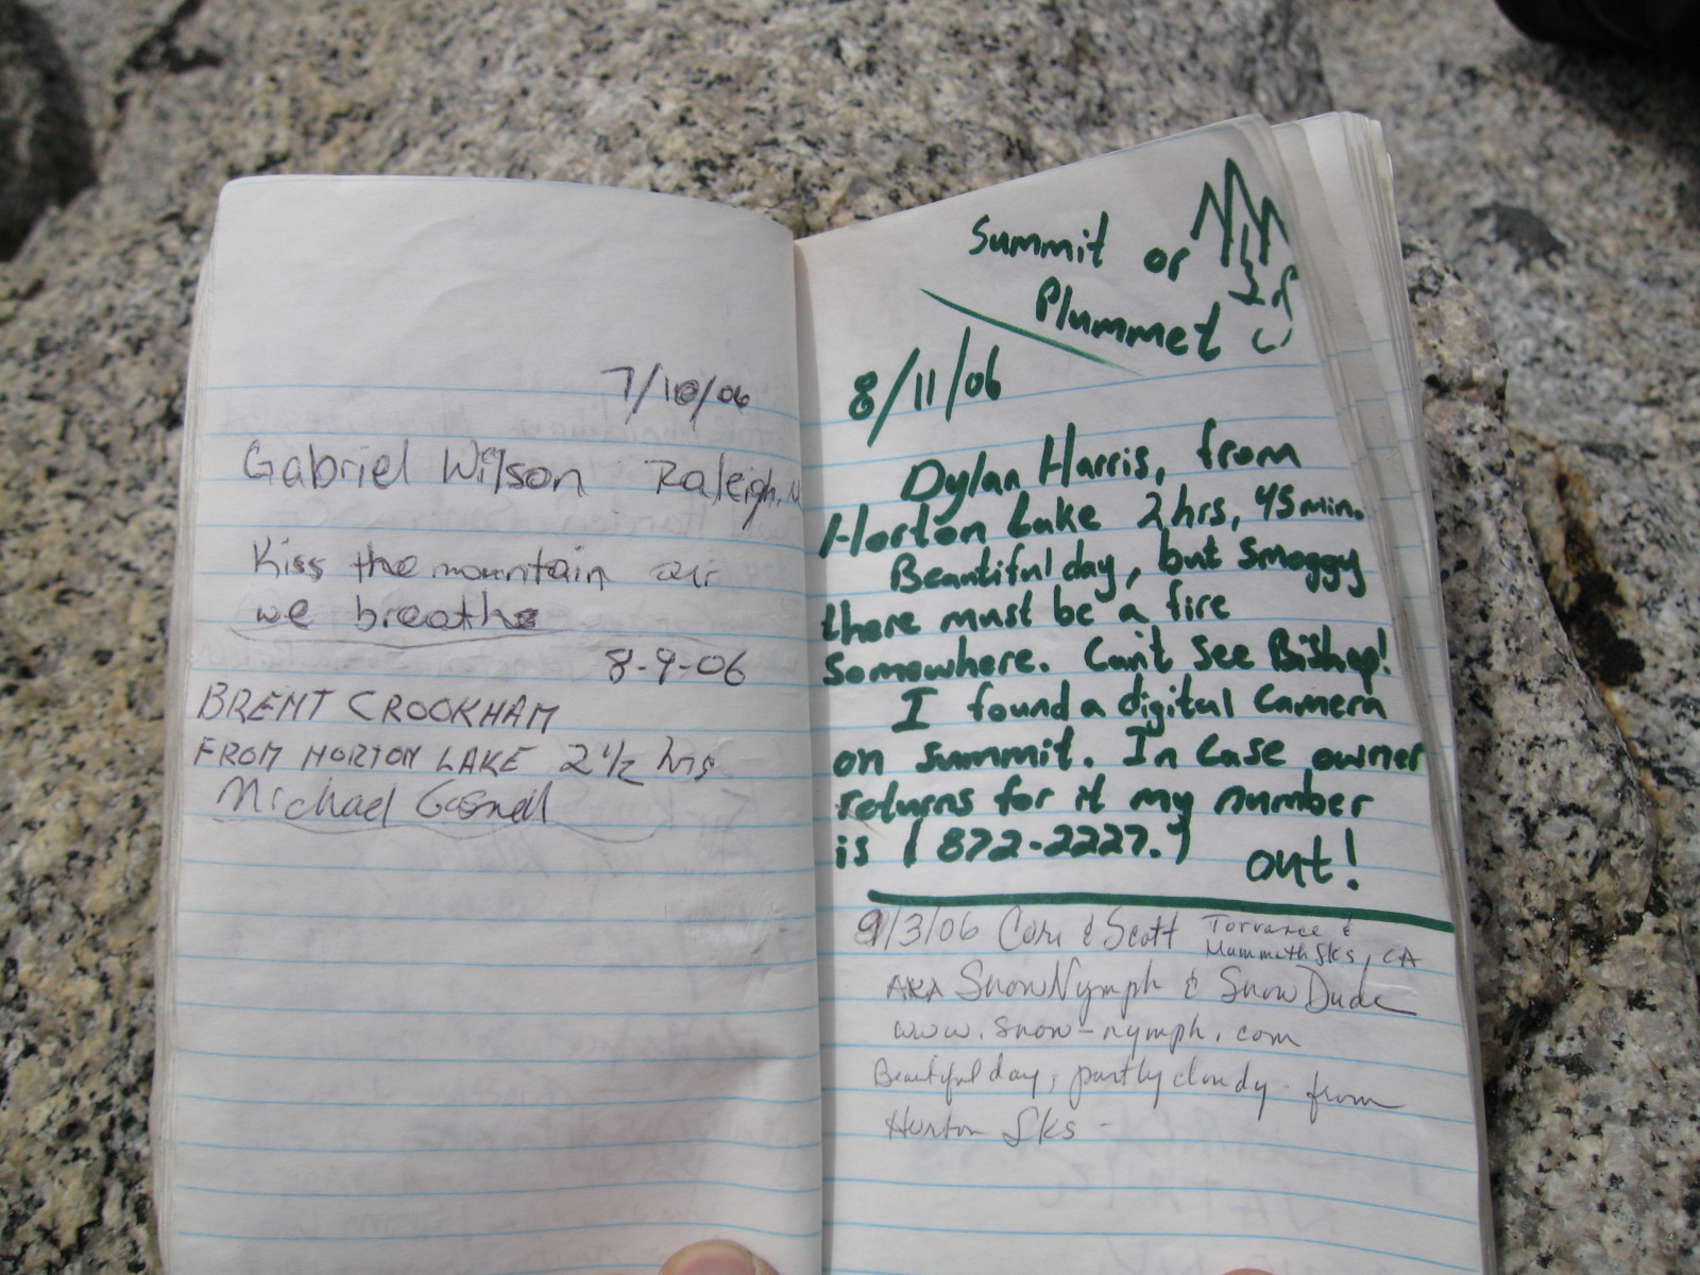 7/10/06
Gabriel Wilson Raleigh, N
Kiss the mountain air
we breathe
8-9-06
BRENT CROOKHAM
FROM HORTON LAKE 2 1/2 hrs
Michael
Summit or
Plummet
8/11/06
Dylan Harris, from
Horton Lake 2hrs, 45min.
Beautiful day, but smoggy
there must be a fire
somewhere. Can't see Bishop!
I found a digital camera
on summit. In case owner
returns for it my number
is (872-2227.)
out!
9/3/06 Cori & Scott Torrance &
Mammoth Lks, CA
AKA SnowNymph & SnowDude
www.snow-nymph.com
Beautiful day, partly cloudy - from
Horton Lks -